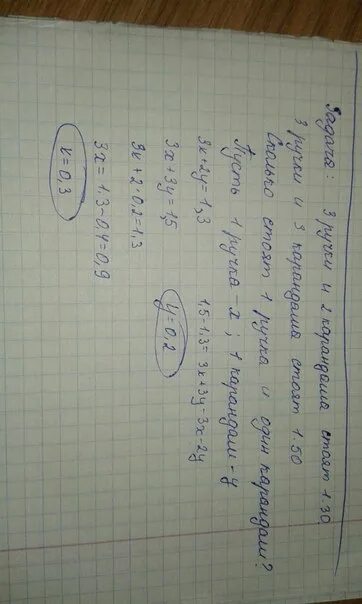 Задача: 3 ручки и 2 карандаша стоят 1.30,
3 ручки и 3 карандаша стоят 1.50
Сколько стоят 1 ручка и один карандаш?
Пусть 1 ручка - x; 1 карандаш - y
3x+2y=1,3
1,5-1,3=3x+3y-3x-2y
3x+3y=1,5
y=0,2
3x+2·0,2=1,3
3x=1,3-0,4=0,9
x=0,3